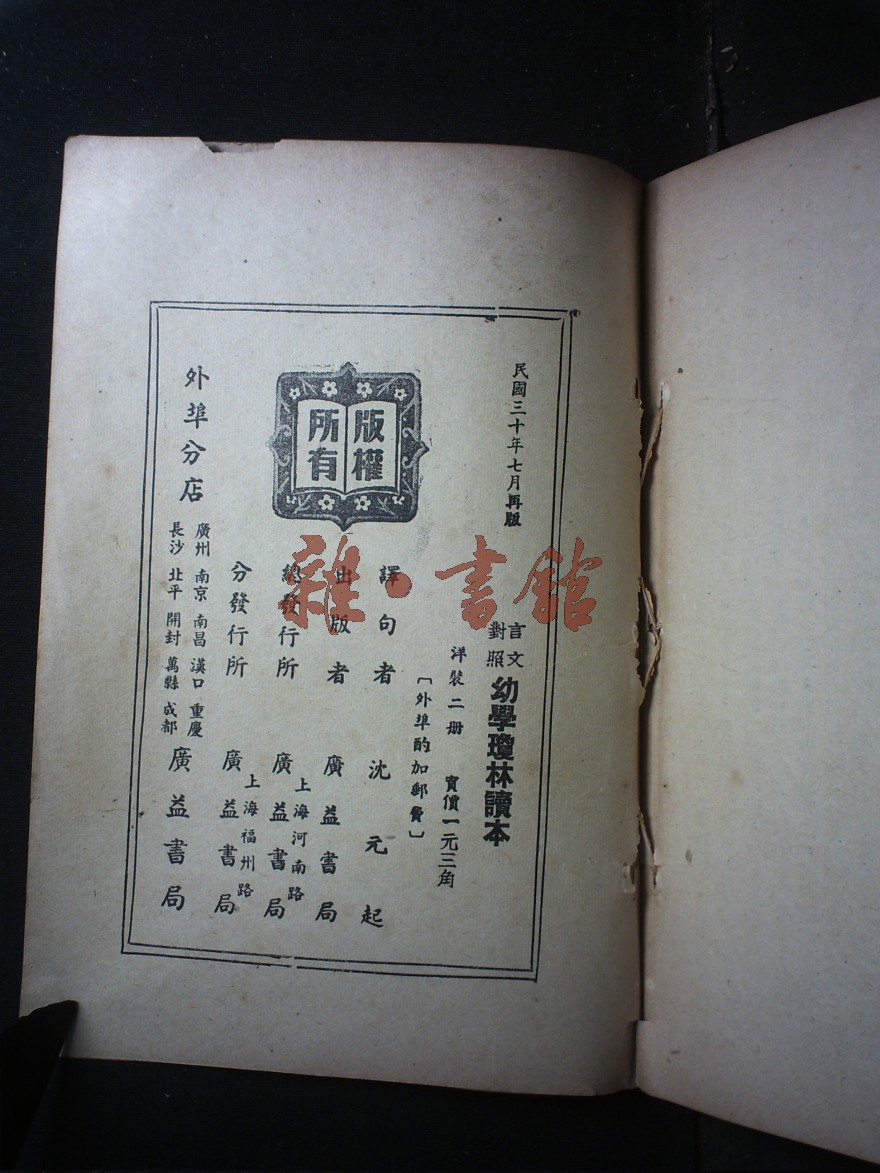 民國三十年七月再版
言文對照
幼學瓊林讀本
洋裝二册 實價一元三角
〔外埠酌加郵費〕
譯句者 沈元起
出版者 廣益書局
總發行所 上海河南路 廣益書局
分發行所 上海福州路 廣益書局
外埠分店 廣州 南京 南昌 漢口 重慶 長沙 北平 開封 萬縣 成都 廣益書局
版權所有
雜·書館